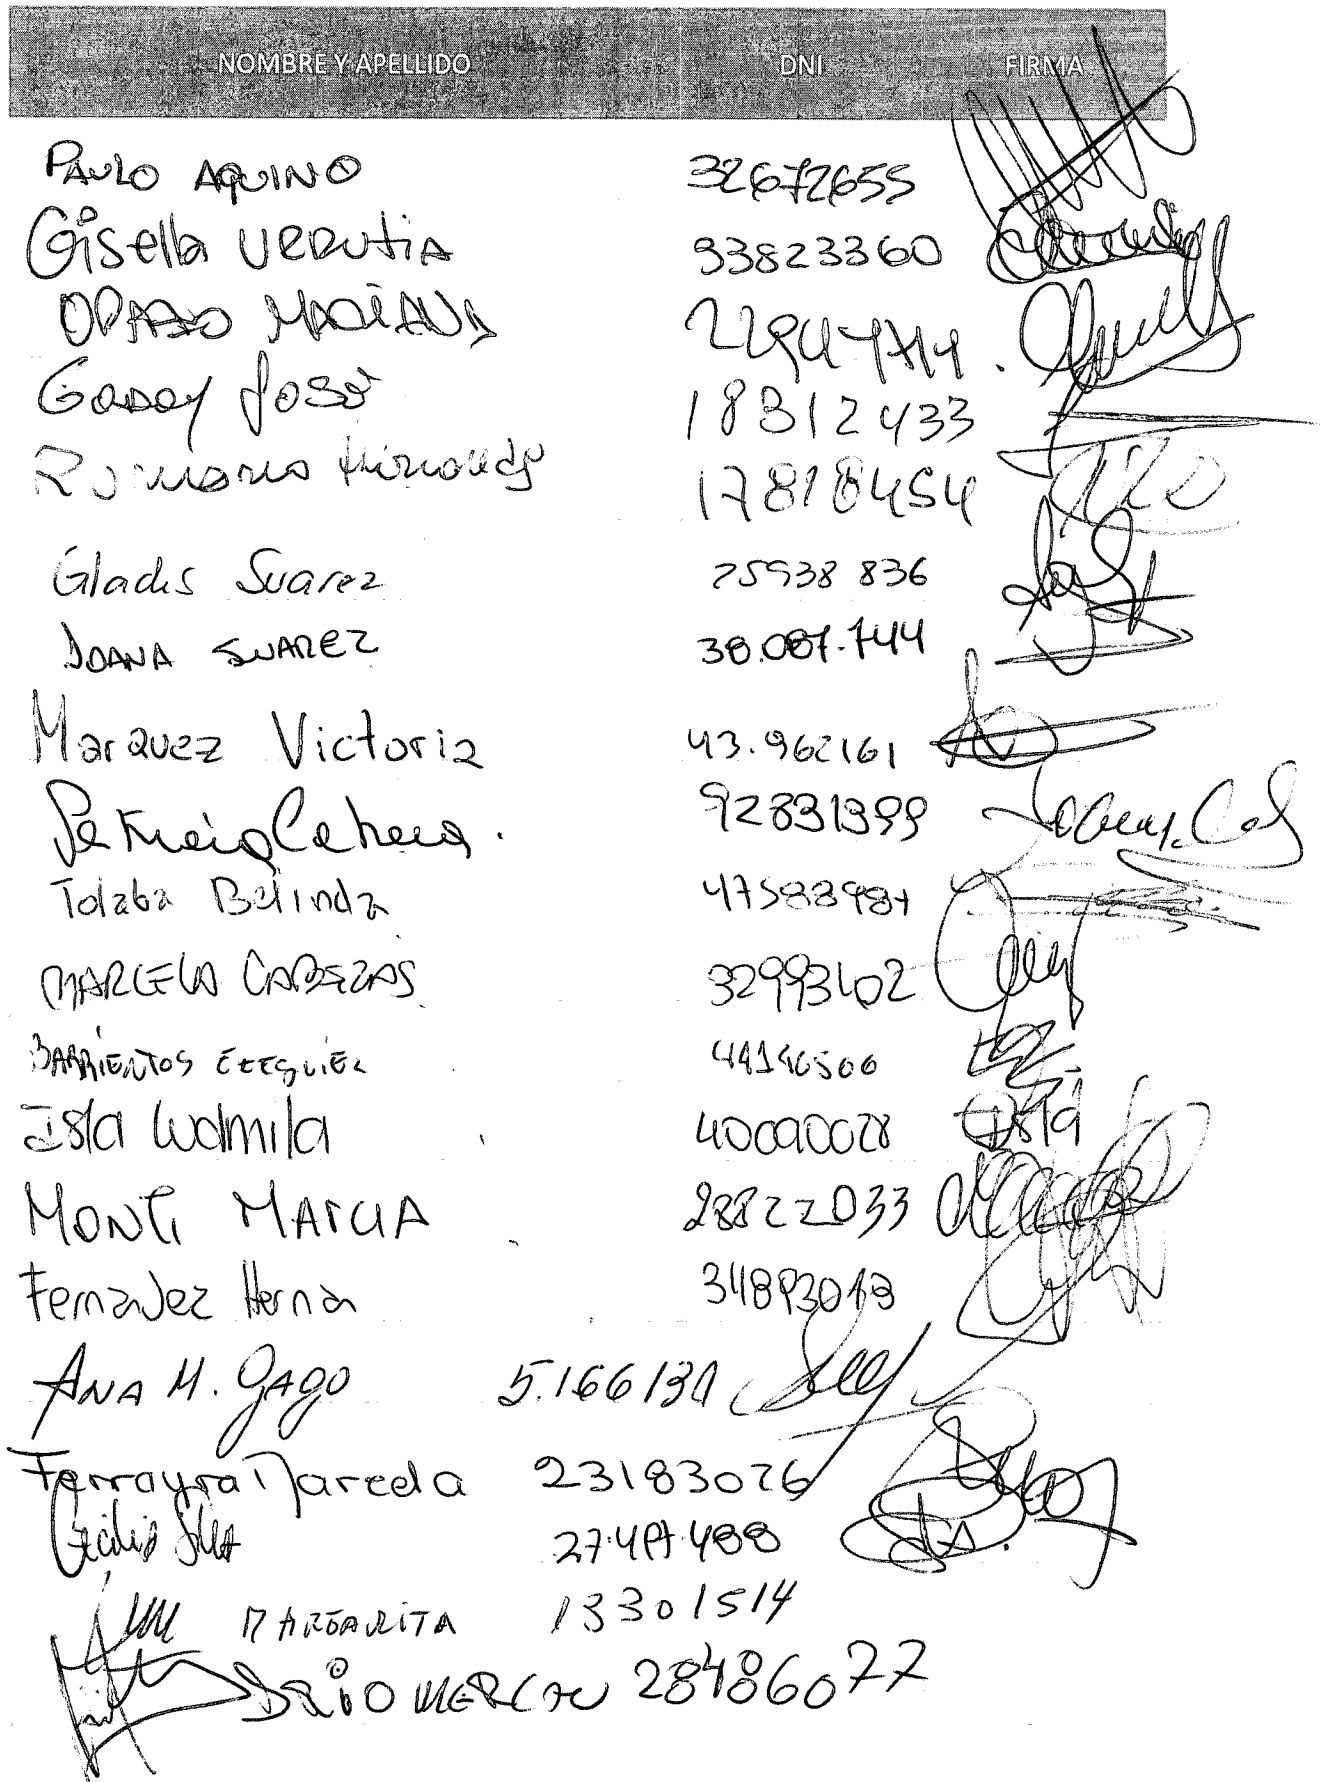 NOMBRE Y APELLIDO DNI FIRMA
PAULO AQUINO 32672655
Gisella URRUTIA 93823360
OPAZO MARIANA
Godoy José 18312433
17818454
Gladis Suarez 25938 836
JOANA SUAREZ 38.087.744
Marquez Victoria 43.962161
Patricia Cabrera. 92831399
Tolaba Belinda 47588987
MARCELA CABEZAS 32993402
BARRIENTOS EZEQUIEL 44146500
Isla Ludmila 40090028 Isla
MONTI MARCIA 28822033
Fernandez Hernan
ANA M. GAGO 5.166131
Ferrayra Marcela 23183026
Cecilia Silva
MARGARITA 13301514
DARIO MERCAU 28486077